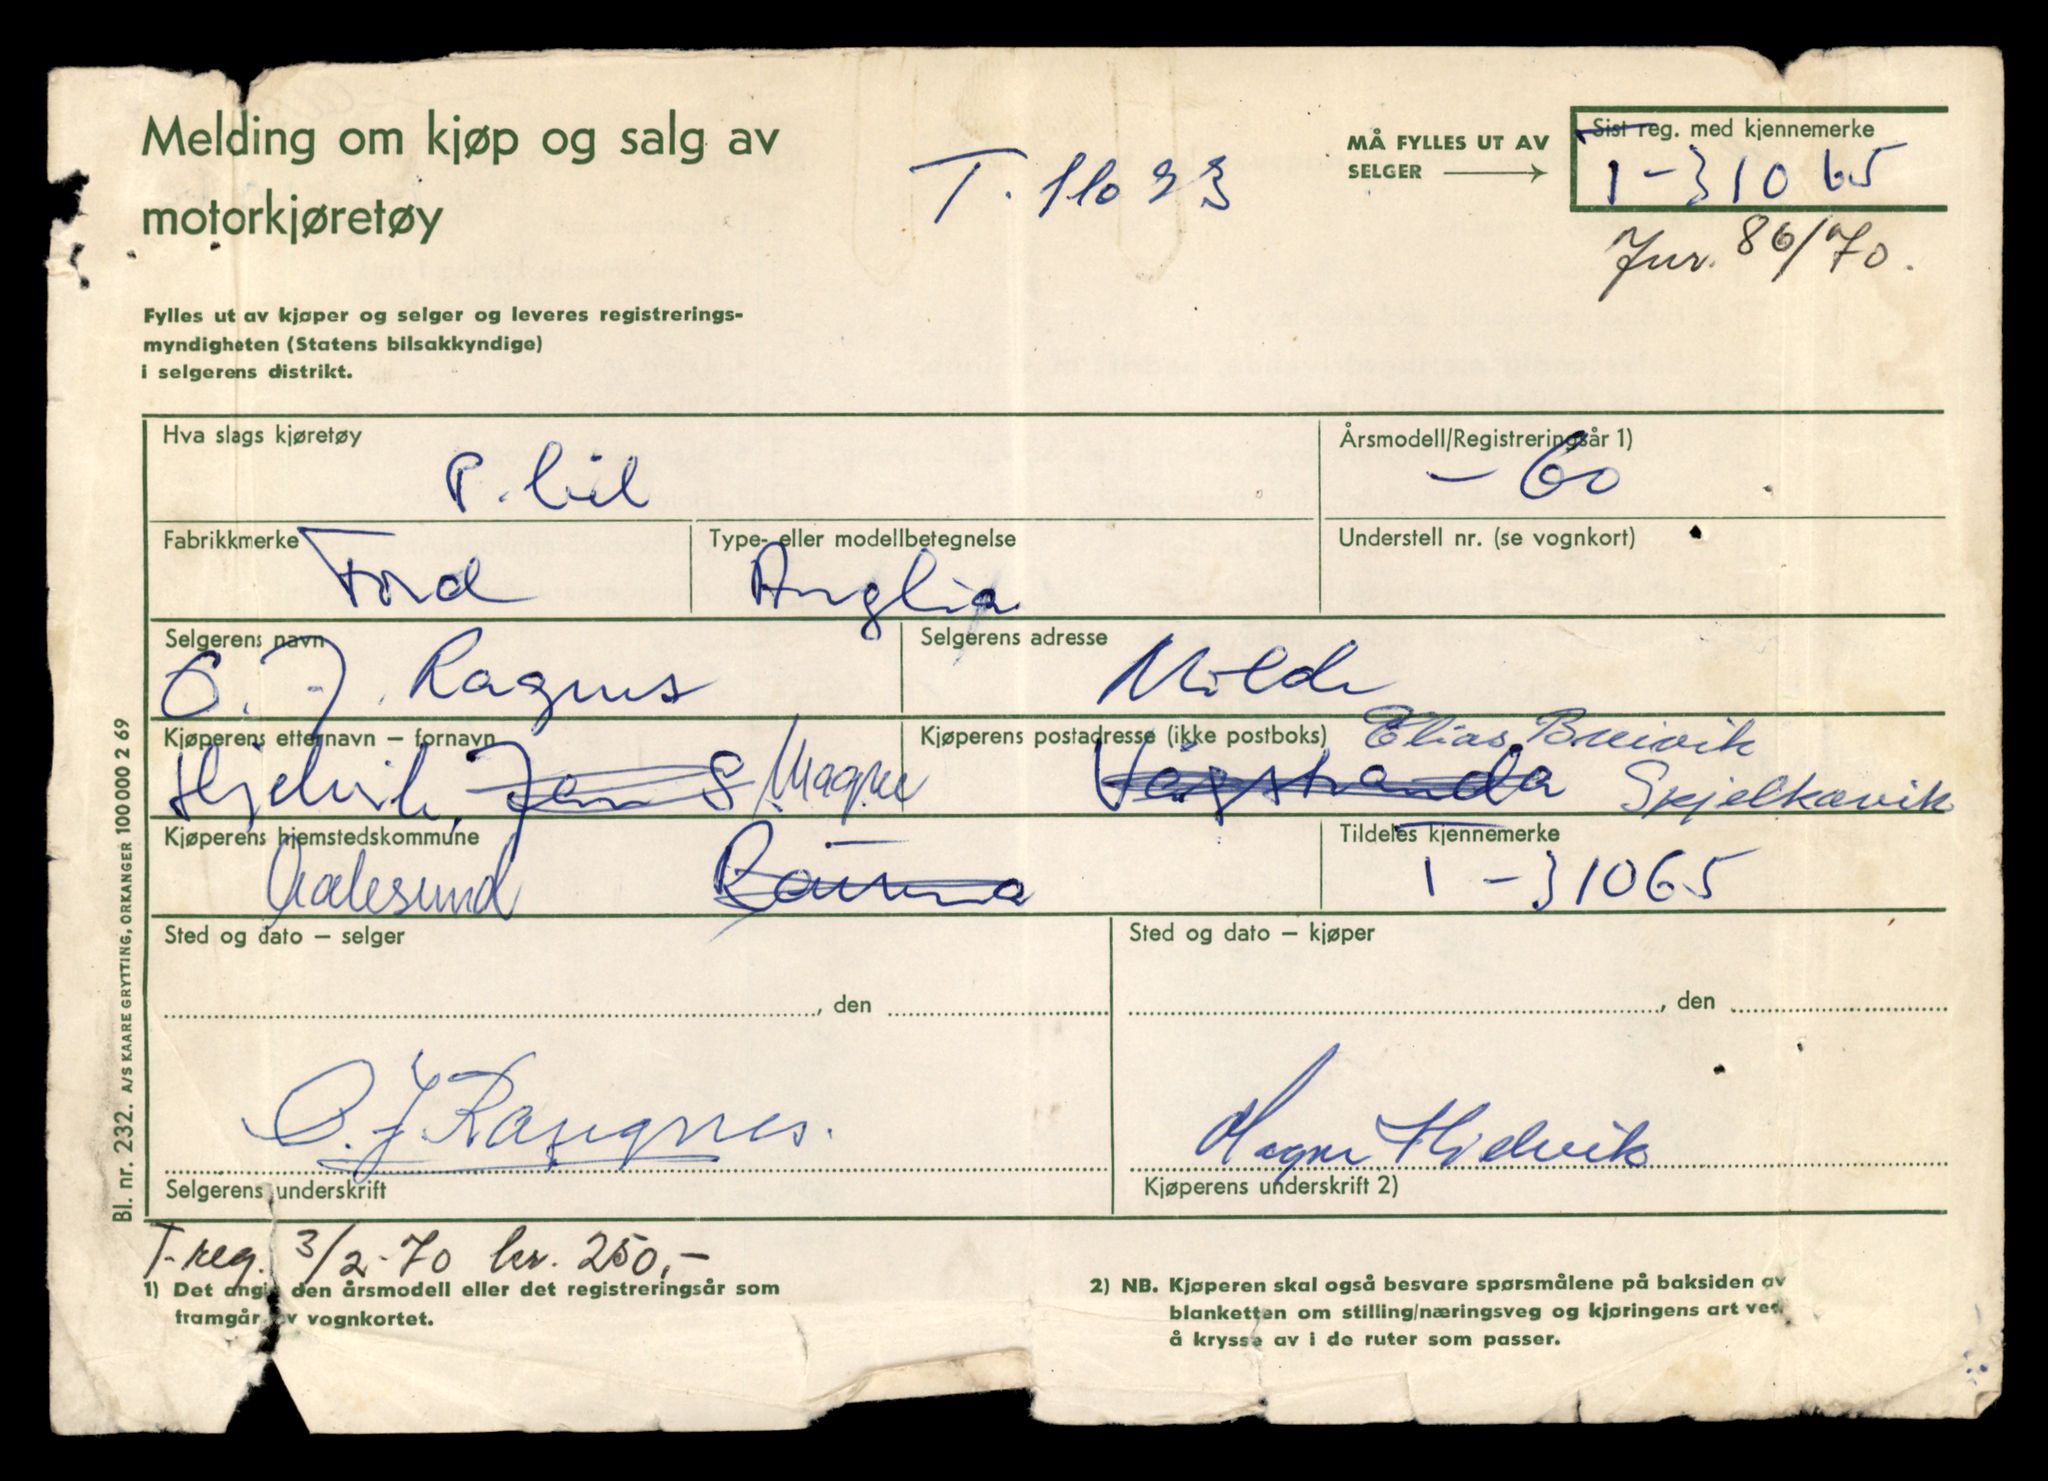 Melding om kjøp og salg av
motorkjøretøy
T. 11023
MÅ FYLLES UT AV
SELGER
Sist reg. med kjennemerke
1-31065
Jnr. 86/70.
Fylles ut av kjøper og selger og leveres registrerings-
myndigheten (Statens bilsakkyndige)
i selgerens distrikt.
Hva slags kjøretøy
P. bil
Årsmodell/Registreringsår 1)
- 60
Fabrikkmerke
Ford
Type- eller modellbetegnelse
Anglia
Understell nr. (se vognkort)
Selgerens navn
O. J. Ragnes
Selgerens adresse
Molde
Kjøperens etternavn – fornavn
Hjelvik, Jan S/Magne
Kjøperens postadresse (ikke postboks) Elias Breivik
Vågstranda Spjelkavik
Kjøperens hjemstedskommune
Aalesund Rauma
Tildeles kjennemerke
1-31065
Sted og dato – selger
, den
Sted og dato – kjøper
, den
O. J. Rangnes.
Selgerens underskrift
Magne Hjelvik
Kjøperens underskrift 2)
T-reg. 3/2-70 kr. 250,-
1) Det angis den årsmodell eller det registreringsår som
framgår av vognkortet.
2) NB. Kjøperen skal også besvare spørsmålene på baksiden av
blanketten om stilling/næringsveg og kjøringens art ved
å krysse av i de ruter som passer.
Bl. nr. 232. A/S KAARE GRYTTING, ORKANGER 100 000 2 69